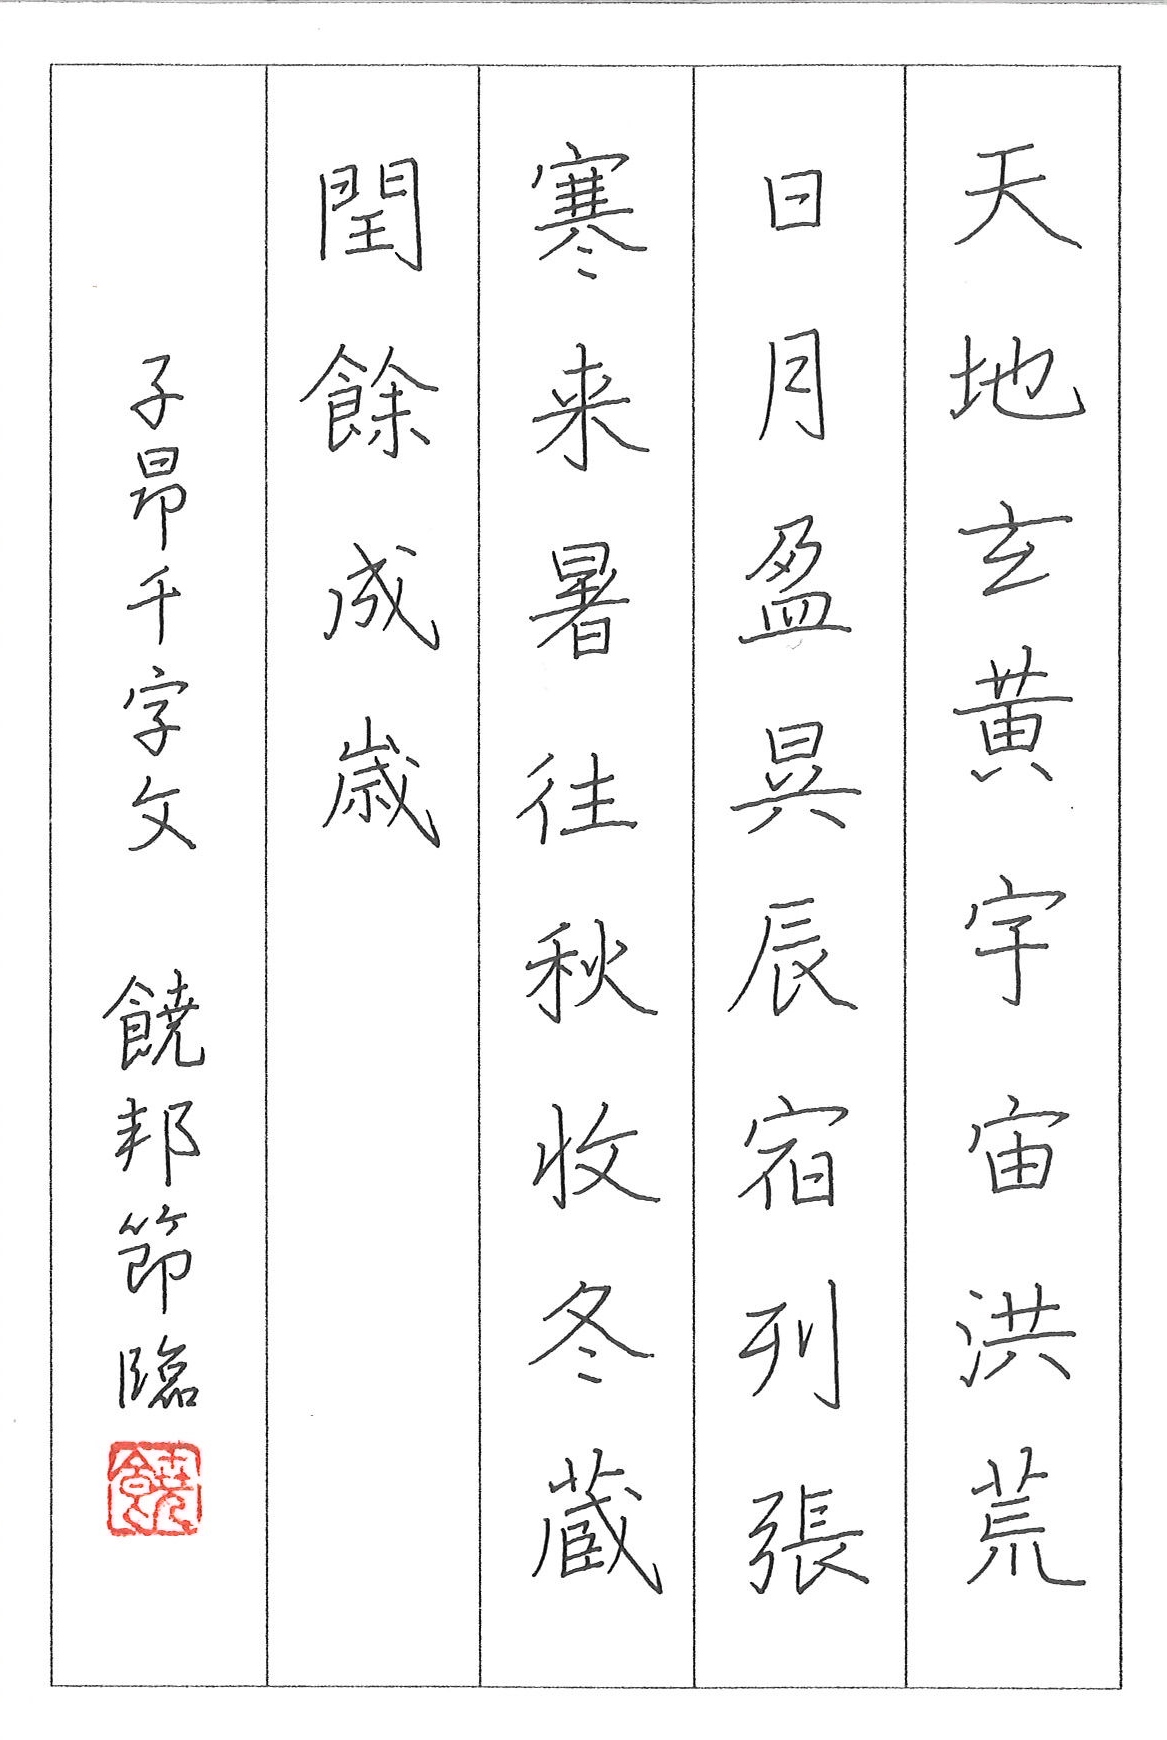 天地玄黃宇宙洪荒
日月盈昃辰宿列張
寒来暑往秋收冬蔵
閏餘成歳
子昂千字文 饒邦節臨
饒